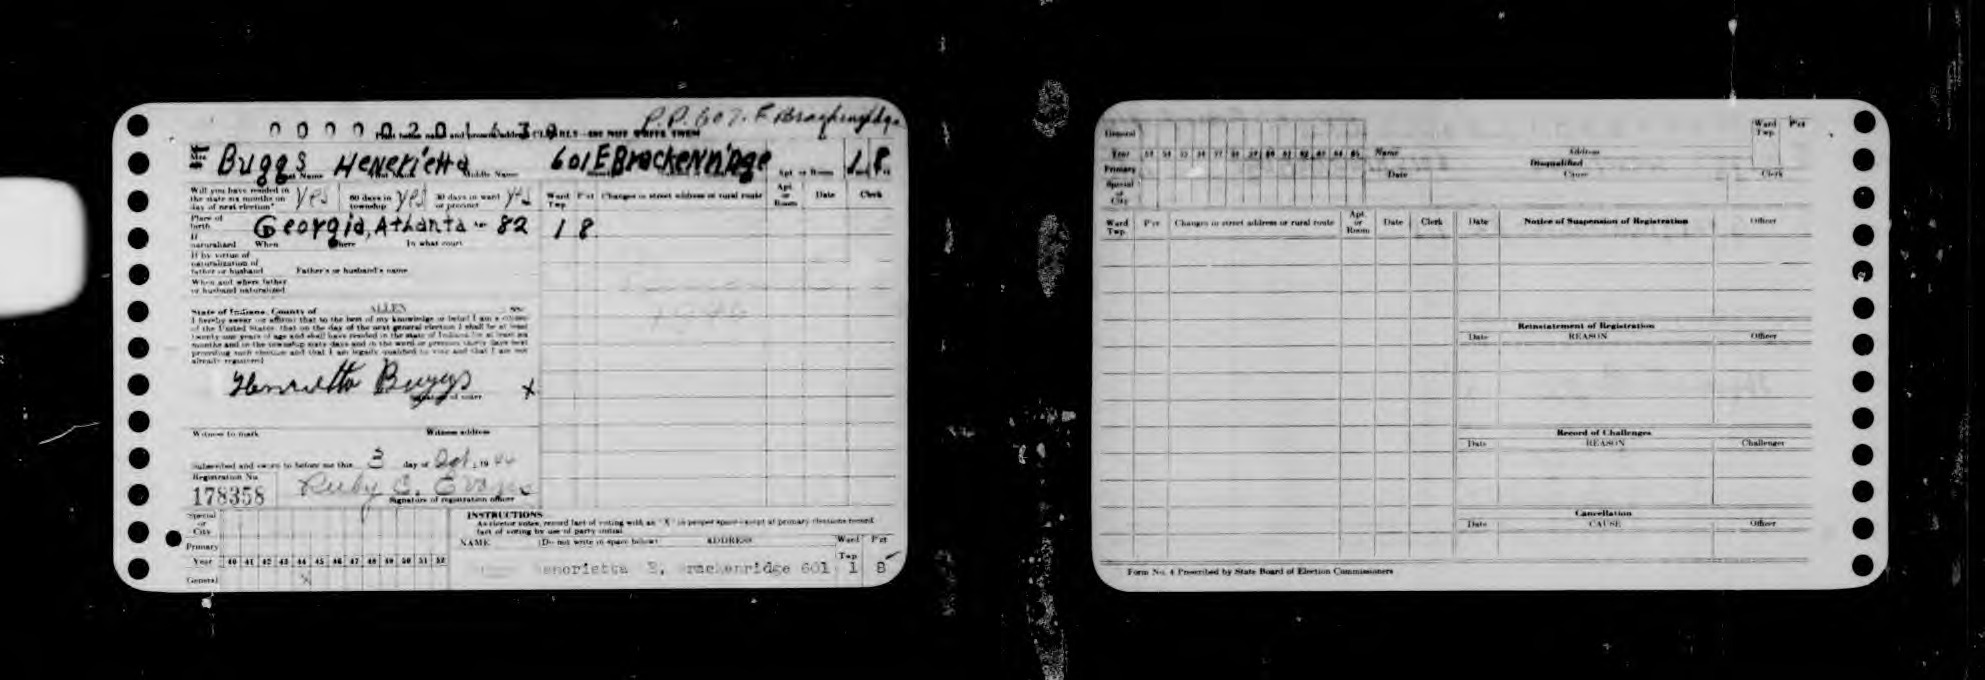 P.P. 607. E Brackenridge
Print below name and present address CLEARLY—DO NOT WRITE THEM
Mrs. Buggs Henrietta 601 E Brackenridge 1 8
Last Name Middle Name Apt. or Room
Will you have resided in the state six months on day of next election? Yes 60 days in township Yes 30 days in ward or precinct Yes
Ward Twp. Pct Changes in street address or rural route Apt. or Room Date Clerk
Place of birth Georgia, Atlanta - 82 1 8
If naturalized When Where In what court
If by virtue of naturalization of father or husband Father's or husband's name
When and where father or husband naturalized
State of Indiana, County of ALLEN ss:
I hereby swear or affirm that to the best of my knowledge or belief I am a citizen
of the United States, that on the day of the next general election I shall be at least
twenty-one years of age and shall have resided in the state of Indiana for at least six
months and in the township sixty days and in the ward or precinct thirty days next
preceding such election and that I am legally qualified to vote and that I am not
already registered
Henrietta Buggs X
Signature of voter
Witness to mark Witness address
Subscribed and sworn to before me this 3 day of Oct, 1944
Registration No. 178358
Ruby E. Evans
Signature of registration officer
Special or City
Primary
Year 40 41 42 43 44 45 46 47 48 49 50 51 52
General X
INSTRUCTIONS
As elector votes, record fact of voting with an "X" in proper space except at primary elections record
fact of voting by use of party initial
NAME (Do not write in space below) ADDRESS Ward Twp Pct
enorietta E, rackenridge 601 1 8
General
Year 53 54 55 56 57 58 59 60 61 62 63 64 65
Primary
Special or City
Name Address
Ward Twp. Pct
Disqualified
Date Cause Clerk
Ward Twp. Pct Changes in street address or rural route Apt. or Room Date Clerk
Date Notice of Suspension of Registration Officer
Reinstatement of Registration
Date REASON Officer
Record of Challenges
Date REASON Challenger
Cancellation
Date CAUSE Officer
Form No. 4 Prescribed by State Board of Election Commissioners